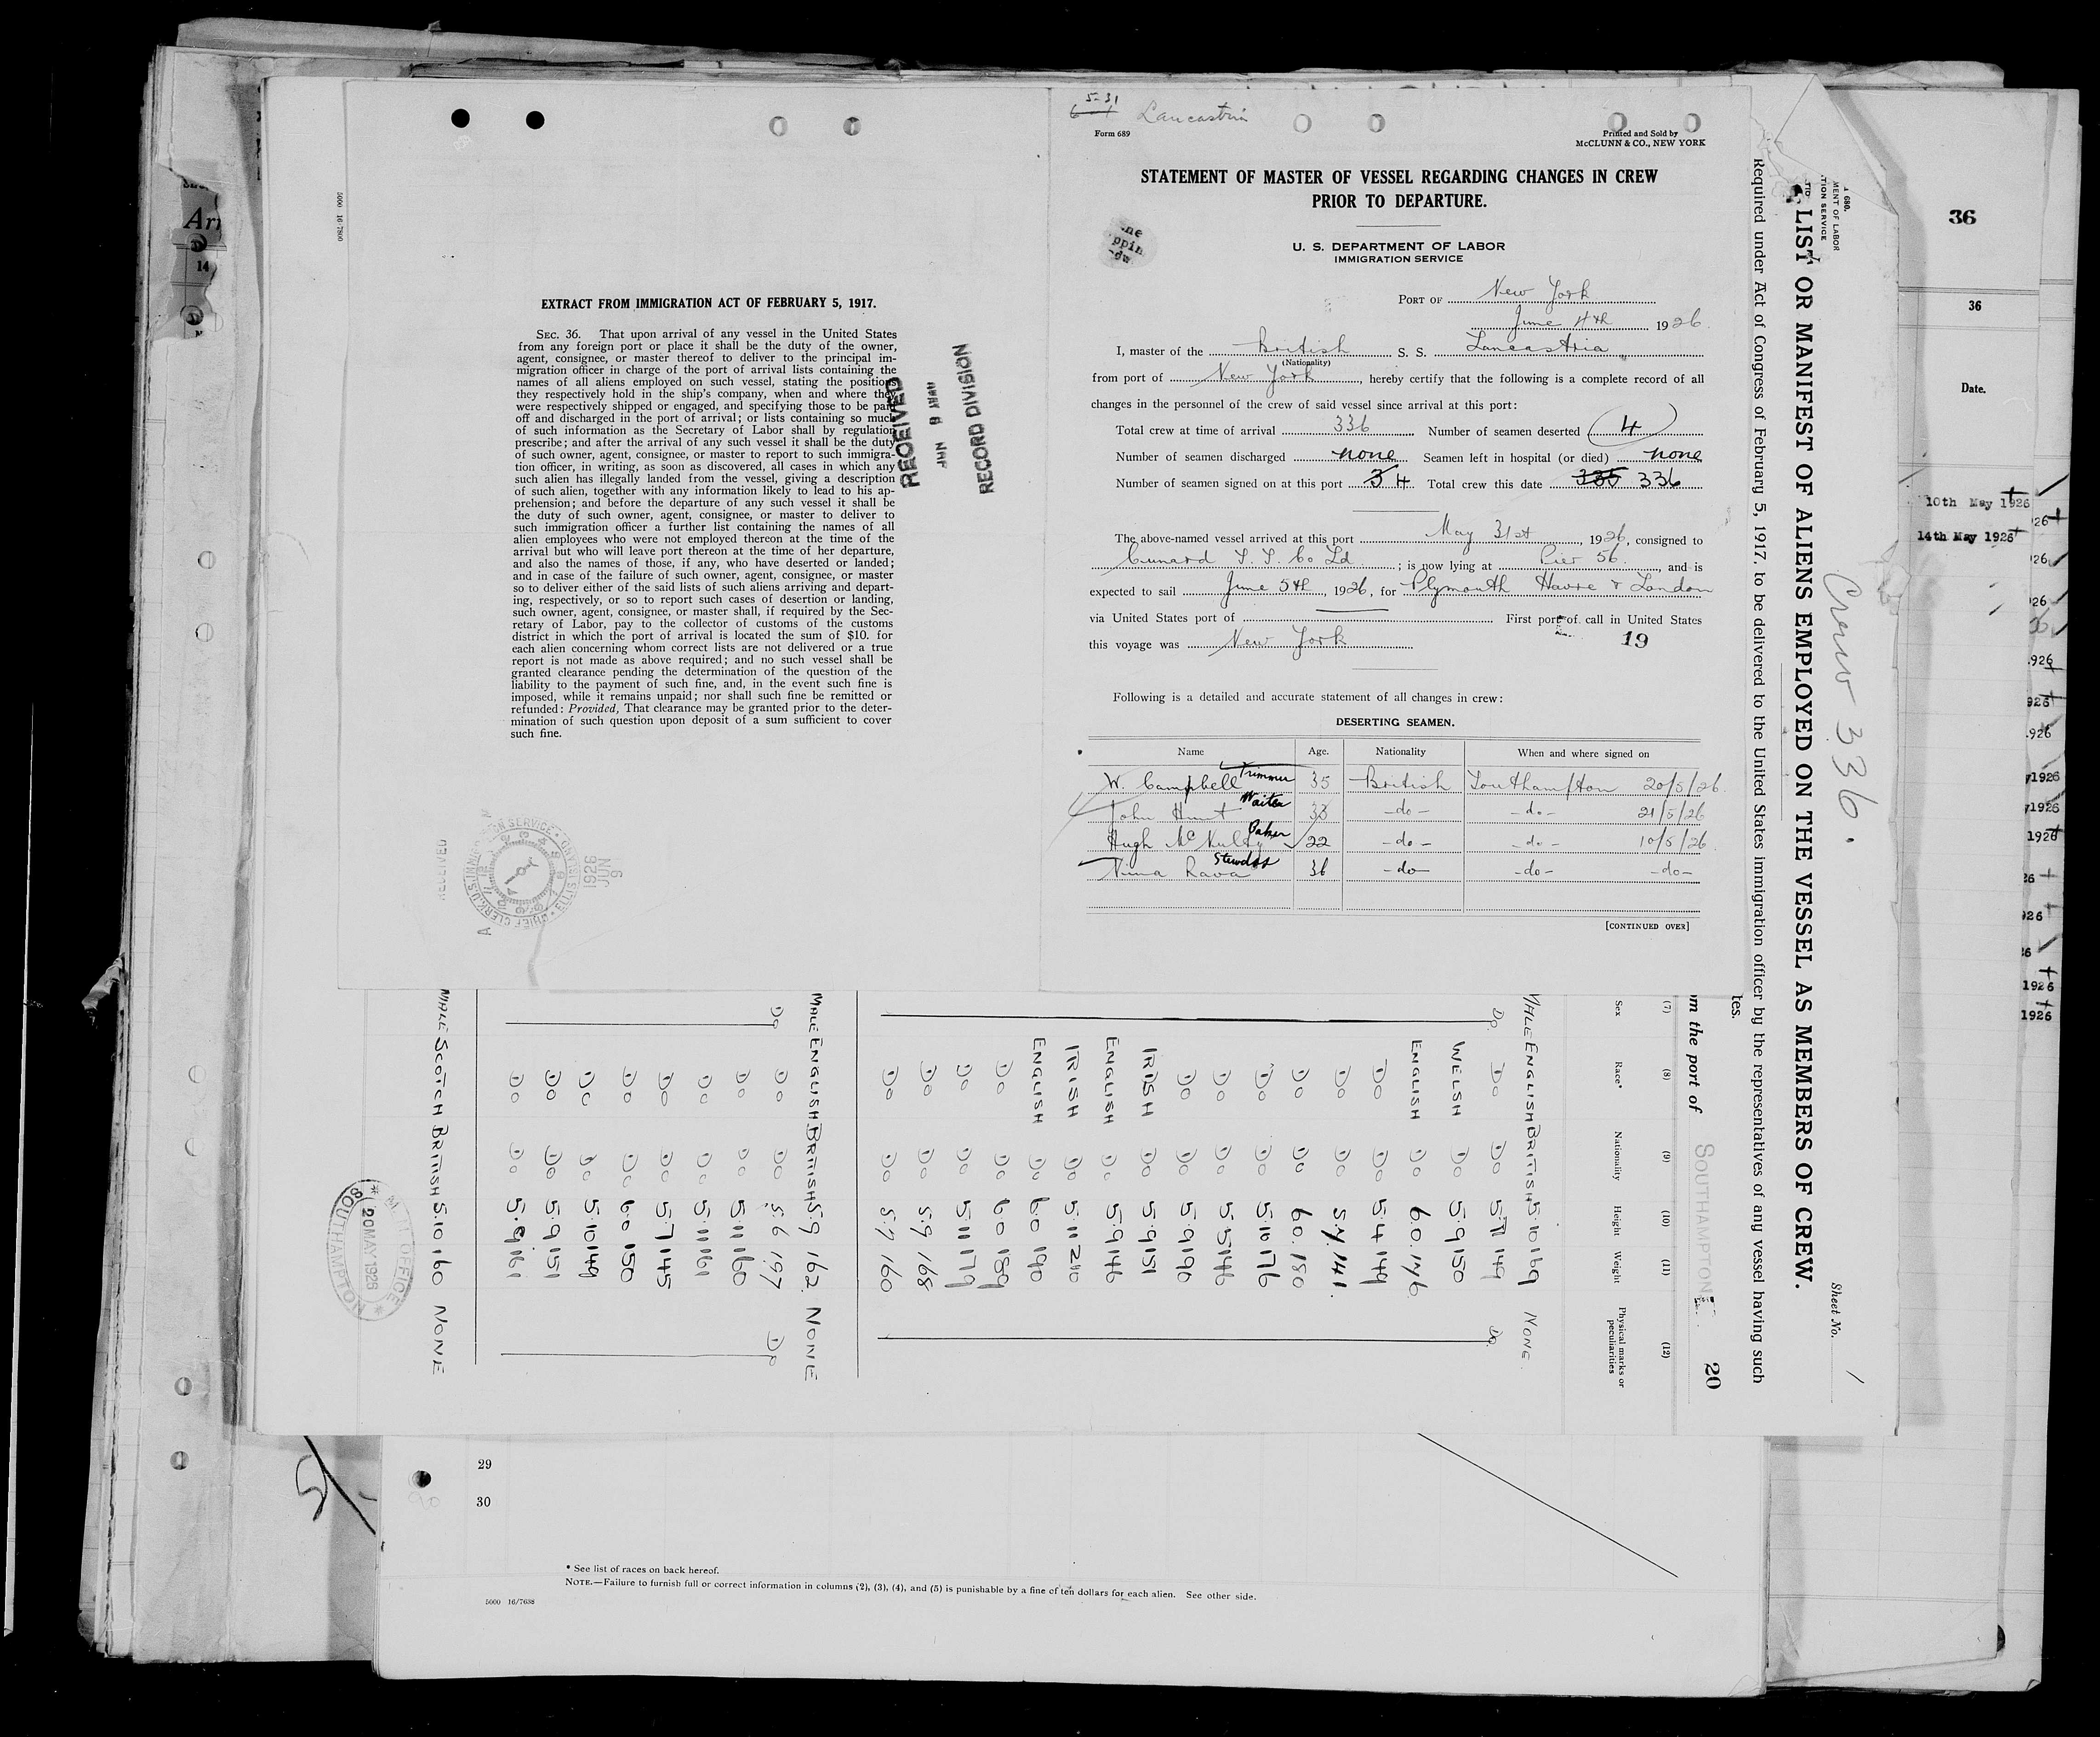 EXTRACT FROM IMMIGRATION ACT OF FEBRUARY 5, 1917.
SEC. 36. That upon arrival of any vessel in the United States
from any foreign port or place it shall be the duty of the owner,
agent, consignee, or master thereof to deliver to the principal im-
migration officer in charge of the port of arrival lists containing the
names of all aliens employed on such vessel, stating the positions
they respectively hold in the ship's company, when and where they
were respectively shipped or engaged, and specifying those to be paid
off and discharged in the port of arrival; or lists containing so much
of such information as the Secretary of Labor shall by regulation
prescribe; and after the arrival of any such vessel it shall be the duty
of such owner, agent, consignee, or master to report to such immigra-
tion officer, in writing, as soon as discovered, all cases in which any
such alien has illegally landed from the vessel, giving a description
of such alien, together with any information likely to lead to his ap-
prehension; and before the departure of any such vessel it shall be
the duty of such owner, agent, consignee, or master to deliver to
such immigration officer a further list containing the names of all
alien employees who were not employed thereon at the time of the
arrival but who will leave port thereon at the time of her departure,
and also the names of those, if any, who have deserted or landed;
and in case of the failure of such owner, agent, consignee, or master
so to deliver either of the said lists of such aliens arriving and depart-
ing, respectively, or so to report such cases of desertion or landing,
such owner, agent, consignee, or master shall, if required by the Sec-
retary of Labor, pay to the collector of customs of the customs
district in which the port of arrival is located the sum of $10. for
each alien concerning whom correct lists are not delivered or a true
report is not made as above required; and no such vessel shall be
granted clearance pending the determination of the question of the
liability to the payment of such fine, and, in the event such fine is
imposed, while it remains unpaid; nor shall such fine be remitted or
refunded: Provided, That clearance may be granted prior to the deter-
mination of such question upon deposit of a sum sufficient to cover
such fine.
5000 16-7800
RECEIVED
RECORD DIVISION
1926
JUN
9
5-31
Lancastria
Form 689
Printed and Sold by
McCLUNN & CO., NEW YORK
STATEMENT OF MASTER OF VESSEL REGARDING CHANGES IN CREW
PRIOR TO DEPARTURE.
U. S. DEPARTMENT OF LABOR
IMMIGRATION SERVICE
PORT OF New York
June 4th 1926.
I, master of the British S. S. Lancastria
(Nationality)
from port of New York, hereby certify that the following is a complete record of all
changes in the personnel of the crew of said vessel since arrival at this port:
Total crew at time of arrival 336 Number of seamen deserted 4
Number of seamen discharged none Seamen left in hospital (or died) none
Number of seamen signed on at this port 3 4 Total crew this date 335 336
The above-named vessel arrived at this port May 31st, 1926, consigned to
Cunard S. S. Co Ld; is now lying at Pier 56., and is
expected to sail June 5th, 1926, for Plymouth Havre & London
via United States port of First port of call in United States
this voyage was New York 19
Following is a detailed and accurate statement of all changes in crew:
DESERTING SEAMEN.
Name Age. Nationality When and where signed on
W. Campbell Trimmer 35 British Southampton 20/5/26.
John Hunt Waiter 33 -do- -do- 21/5/26
Hugh McNulty Baker 22 -do- -do- 10/5/26.
Nina Rava Stewdss 36 -do- -do- -do-
[CONTINUED OVER]
LIST OR MANIFEST OF ALIENS EMPLOYED ON THE VESSEL AS MEMBERS OF CREW.
Required under Act of Congress of February 5, 1917, to be delivered to the United States immigration officer by the representatives of any vessel having such
Crew 336.
Sheet No. 1
tes.
m the port of SOUTHAMPTON 20
(7) (8) (9) (10) (11) (12)
Sex Race* Nationality Height Weight Physical marks or
peculiarities
MALE ENGLISH BRITISH 5.10 169 NONE.
Do. Do Do 5.11 149 Do.
WELSH Do 5.9 150
ENGLISH Do 6.0. 146
Do Do 5.4 149
Do Do 5.4. 141.
Do Do 6.0. 180
Do Do 5.10 176
Do Do 5.5 146
Do Do 5.9 190
IRISH Do 5.9 151
ENGLISH Do 5.9 146
IRISH Do 5.11 210
ENGLISH Do 6.0 190
Do Do 6.0 189
Do Do 5.11 179
Do Do 5.9 168
Do Do 5.7 160
MALE ENGLISH BRITISH 5.9 162. NONE
Do Do Do 5.6 197 Do
Do Do 5.11 160
Do Do 5.11 161
Do Do 5.7 145
Do Do 6.0 150
Do Do 5.10 149
Do Do 5.9 151
Do Do 5.8 161
MALE SCOTCH BRITISH 5.10 160 NONE
20 MAY 1926
SOUTHAMPTON
36
36
Date.
10th May 1926
14th May 1926
29
30
* See list of races on back hereof.
NOTE.—Failure to furnish full or correct information in columns (2), (3), (4), and (5) is punishable by a fine of ten dollars for each alien. See other side.
5000 16/7638